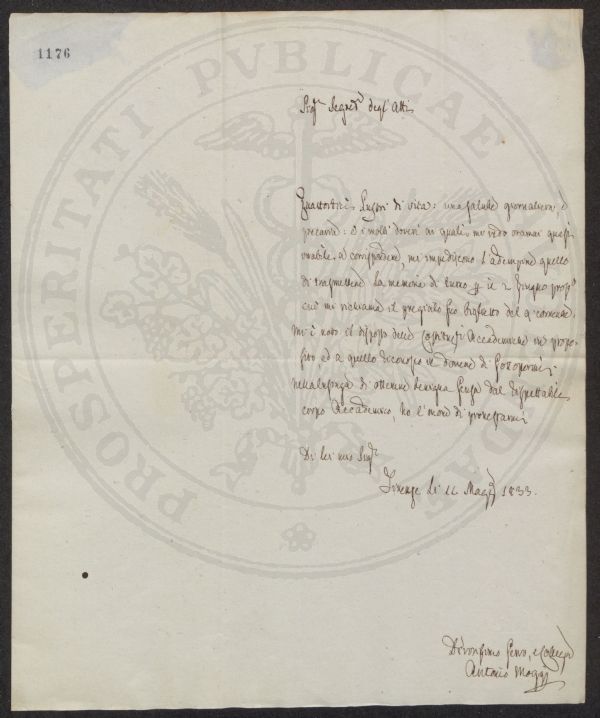 1176
PROSPERITATI PVBLICAE
Sig.r Segret.o degl' Atti
di vita: una salute giornaliera, è
precaria: e i molti doveri ai quali mi vedo oramai quasi
a corrispondere, mi impediscono l'adempire quello
di trasmettere la memoria di turno p il 2 Giugno pros.o
cui mi richiama il pregiato suo biglietto del 9 corrente.
Mi è noto il disposto delle Accademiche in propo-
sito ed a quello di dovere di sottopormi;
nella di ottenere benigna scusa dal rispettabile
corpo Accademico, ho l'onore di protestarmi
Di lei mio Sig.r
Firenze li 11 Magg.o 1833.
Devotissimo Servo, e Collega
Antonio